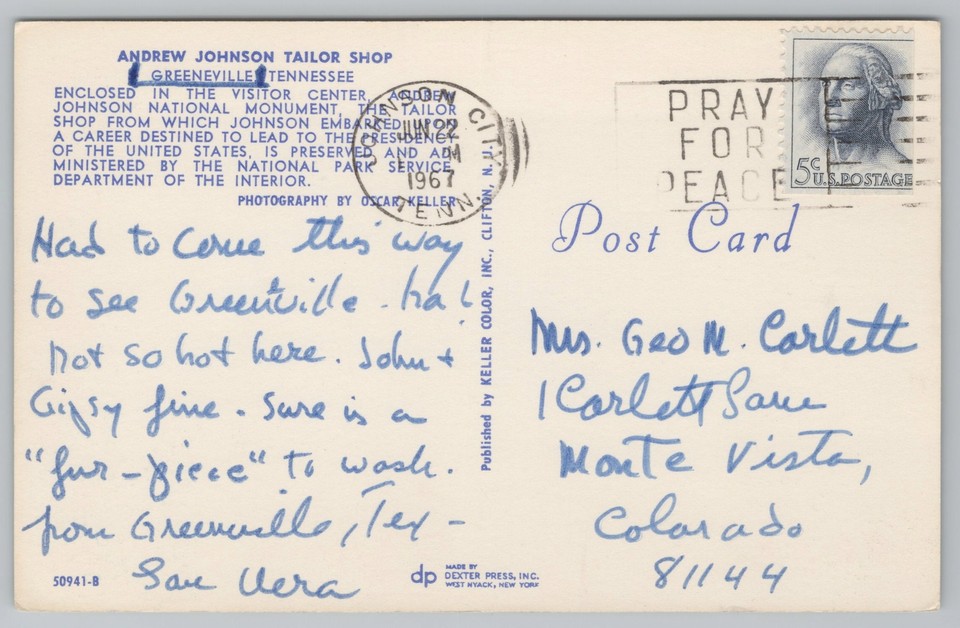 ANDREW JOHNSON TAILOR SHOP
GREENEVILLE, TENNESSEE
ENCLOSED IN THE VISITOR CENTER, ANDREW
JOHNSON NATIONAL MONUMENT, THE TAILOR
SHOP FROM WHICH JOHNSON EMBARKED UPON
A CAREER DESTINED TO LEAD TO THE PRESIDENCY
OF THE UNITED STATES, IS PRESERVED AND AD-
MINISTERED BY THE NATIONAL PARK SERVICE,
DEPARTMENT OF THE INTERIOR.
PHOTOGRAPHY BY OSCAR KELLER
Had to come this way
to see Greenville - ha!
Not so hot here. John +
Gipsy fine. Sure is a
"fur-piece" to wash.
from Greenville, Tex -
Vera
50941-B
Published by KELLER COLOR, INC., CLIFTON, N. J.
dp MADE BY
DEXTER PRESS, INC.
WEST NYACK, NEW YORK
JOHNSON CITY
JUN 22
PM
1967
TENN.
PRAY
FOR
PEACE
5c U.S. POSTAGE
Post Card
Mrs. Geo M. Corlett
1 Corlett Lane
Monte Vista,
Colorado
81144